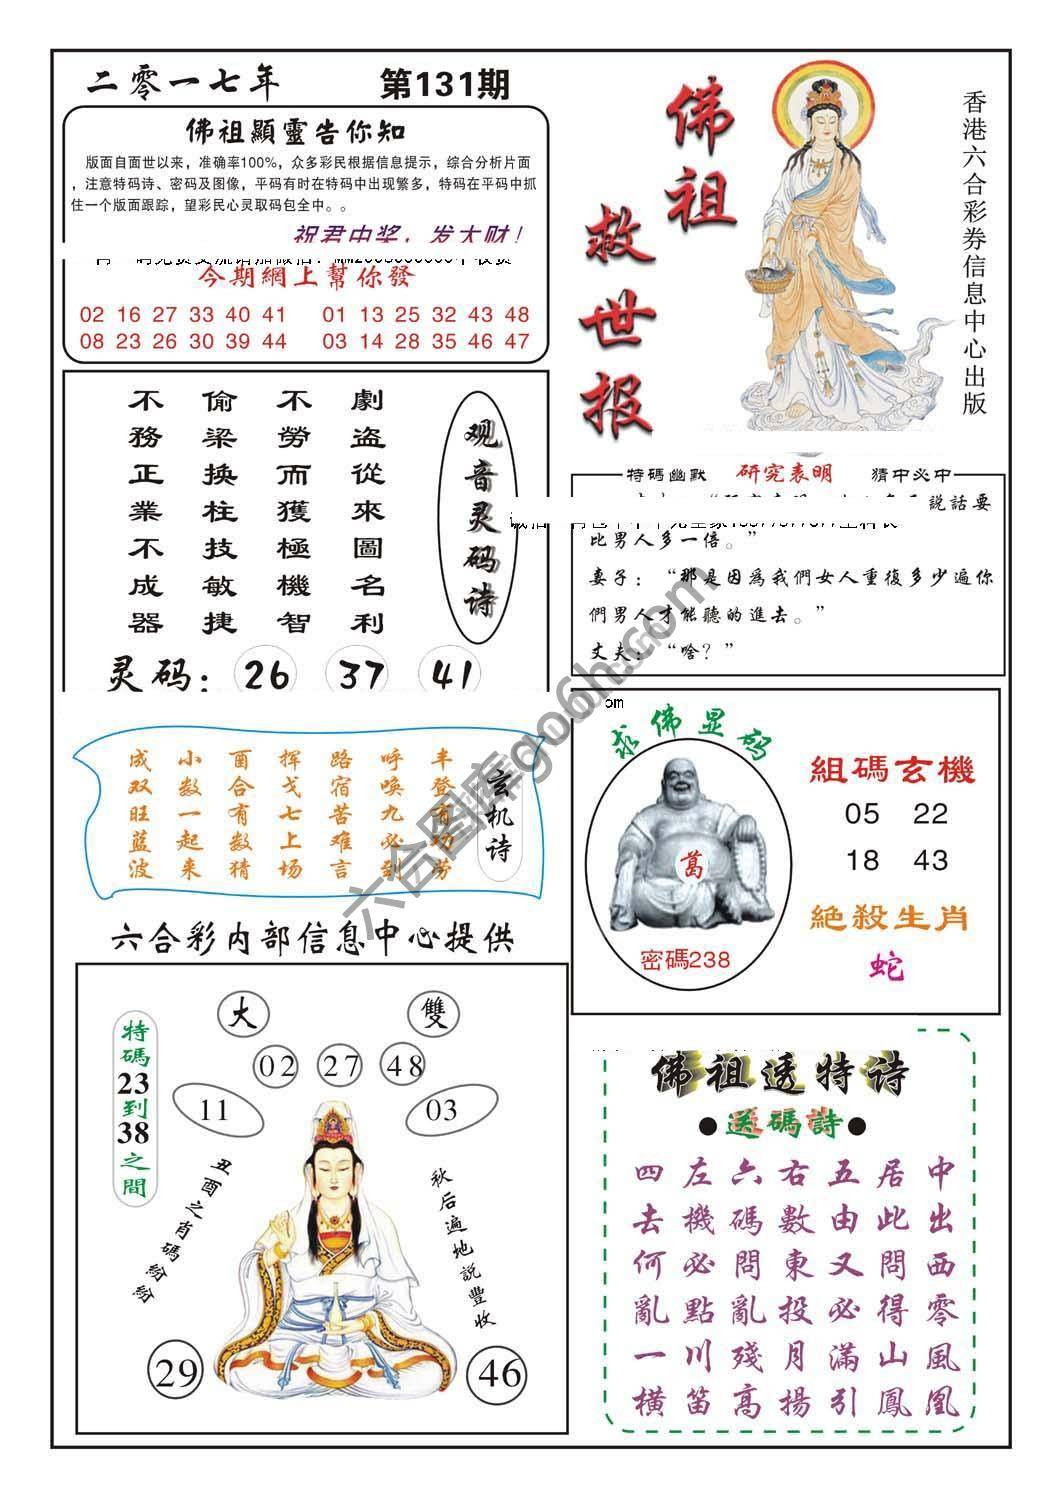 二零一七年 第131期
佛祖顯靈告你知
版面自面世以来，准确率100%，众多彩民根据信息提示，综合分析片面
，注意特码诗、密码及图像，平码有时在特码中出现繁多，特码在平码中抓
住一个版面跟踪，望彩民心灵取码包全中。。
祝君中奖，发大财！
今期網上幫你發
02 16 27 33 40 41 01 13 25 32 43 48
08 23 26 30 39 44 03 14 28 35 46 47
佛祖
救世报
香港六合彩券信息中心出版
观音灵码诗
劇盗從來圖名利
不勞而獲極機智
偷梁換柱技敏捷
不務正業不成器
灵码：26 37 41
特碼幽默 研究表明 猜中必中
説話要
比男人多一倍。”
妻子：“那是因為我們女人重復多少遍你
們男人才能聽的進去。”
丈夫：“啥？”
om
玄机诗
丰登有功劳
呼唤九必到
路宿苦难言
挥戈七上场
酉合有数猜
小数一起来
成双旺蓝波
求佛显码
葛
密碼238
組碼玄機
05 22
18 43
絶殺生肖
蛇
六合彩内部信息中心提供
大 雙
02 27 48
11 03
特碼23到38之間
丑酉之肖碼紛紛
秋后遍地説豐收
29 46
佛祖透特诗
●送碼詩●
中出西零風凰
居此問得山鳳
五由又必滿引
右數東投月揚
六碼問亂殘高
左機必點川笛
四去何亂一横
六合图库go6h.com